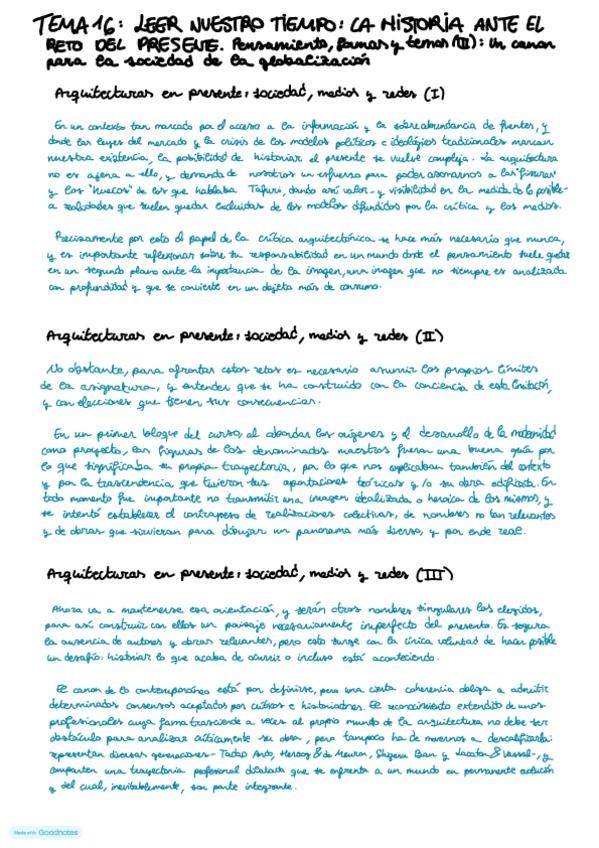 TEMA 16: LEER NUESTRO TIEMPO: LA HISTORIA ANTE EL
RETO DEL PRESENTE. Pensamiento, formas y temas (II): Un canon
para la sociedad de la globalización
Arquitecturas en presente: sociedad, medios y redes (I)
En un contexto tan marcado por el acceso a la información y la sobreabundancia de fuentes, y
donde las leyes del mercado y la crisis de los modelos políticos e ideológicos tradicionales marcan
nuestra existencia, la posibilidad de historiar el presente se vuelve compleja. La arquitectura
no es ajena a ello, y demanda de nosotros un esfuerzo para poder asomarnos a las "fisuras"
y los "huecos" de los que hablaba Tafuri, dando así valor y visibilidad en la medida de lo posible
a realidades que suelen quedar excluidas de los modelos difundidos por la crítica y los medios.
Precisamente por esto el papel de la crítica arquitectónica se hace más necesario que nunca,
y es importante reflexionar sobre su responsabilidad en un mundo donde el pensamiento suele quedar
en un segundo plano ante la importancia de la imagen, una imagen que no siempre es analizada
con profundidad y que se convierte en un objeto más de consumo.
Arquitecturas en presente: sociedad, medios y redes (II)
No obstante, para afrontar estos retos es necesario asumir los propios límites
de la asignatura, y entender que se ha construido con la conciencia de esta limitación,
y con elecciones que tienen sus consecuencias.
En un primer bloque del curso, al abordar los orígenes y el desarrollo de la modernidad
como proyecto, las figuras de los denominados maestros fueron una buena guía por
lo que significaba su propia trayectoria, por lo que nos explicaban también del contexto
y por la trascendencia que tuvieron sus aportaciones teóricas y/o su obra edificada. En
todo momento fue importante no transmitir una imagen idealizada o heroica de los mismos, y
se intentó establecer el contrapeso de realizaciones colectivas, de nombres no tan relevantes
y de obras que sirvieran para dibujar un panorama más diverso, y por ende real.
Arquitecturas en presente: sociedad, medios y redes (III)
Ahora va a mantenerse esa orientación, y serán otros nombres singulares los elegidos,
para así construir con ellos un paisaje necesariamente imperfecto del presente. Es segura
la ausencia de autores y obras relevantes, pero esto surge con la única voluntad de hacer posible
un desafío: historiar lo que acaba de ocurrir o incluso está aconteciendo.
El canon de lo contemporáneo está por definirse, pero una cierta coherencia obliga a admitir
determinados consensos aceptados por críticos e historiadores. El reconocimiento extendido de unos
profesionales cuya fama trasciende a veces al propio mundo de la arquitectura no debe ser
obstáculo para analizar críticamente su obra, pero tampoco ha de movernos a descalificarla:
representan diversas generaciones - Tadao Ando, Herzog & de Meuron, Shigeru Ban y Lacaton & Vassal -, y
comparten una trayectoria profesional dilatada que se enfrenta a un mundo en permanente evolución
y del cual, inevitablemente, son parte integrante.
Made with Goodnotes